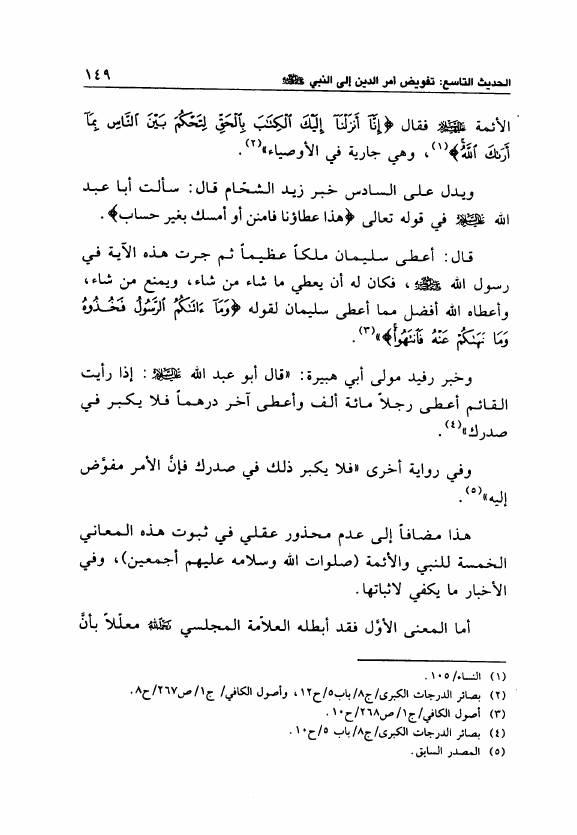 الحديث التاسع: تفويض أمر الدين إلى النبي ﷺ ١٤٩
الأئمة عليهم السلام فقال ﴿إِنَّآ أَنزَلْنَآ إِلَيْكَ ٱلْكِتَٰبَ بِٱلْحَقِّ لِتَحْكُمَ بَيْنَ ٱلنَّاسِ بِمَآ
أَرَىٰكَ ٱللَّهُ﴾(١)، وهي جارية في الأوصياء»(٢).
ويدل على السادس خبر زيد الشحّام قال: سألت أبا عبد
الله عليه السلام في قوله تعالى ﴿هذا عطاؤنا فامنن أو أمسك بغير حساب﴾.
قال: أعطى سليمان ملكاً عظيماً ثم جرت هذه الآية في
رسول الله ﷺ، فكان له أن يعطي ما شاء من شاء، ويمنع من شاء،
وأعطاه الله أفضل مما أعطى سليمان لقوله ﴿وَمَآ ءَاتَىٰكُمُ ٱلرَّسُولُ فَخُذُوهُ
وَمَا نَهَىٰكُمْ عَنْهُ فَٱنتَهُواْ﴾»(٣).
وخبر رفيد مولى أبي هبيرة: «قال أبو عبد الله عليه السلام: إذا رأيت
القائم أعطى رجلاً مائة ألف وأعطى آخر درهماً فلا يكبر في
صدرك»(٤).
وفي رواية أخرى «فلا يكبر ذلك في صدرك فإنَّ الأمر مفوَّض
إليه»(٥).
هذا مضافاً إلى عدم محذور عقلي في ثبوت هذه المعاني
الخمسة للنبي والأئمة (صلوات الله وسلامه عليهم أجمعين)، وفي
الأخبار ما يكفي لاثباتها.
أما المعنى الأوَّل فقد أبطله العلاّمة المجلسي رحمه الله معلّلاً بأنَّ
(١) النساء/١٠٥.
(٢) بصائر الدرجات الكبرى/ج٨/باب٥/ح١٢، وأصول الكافي/ ج١/ص٢٦٧/ح٨.
(٣) أصول الكافي/ج١/ص٢٦٨/ح١٠.
(٤) بصائر الدرجات الكبرى/ج٨/باب ٥/ح١٠.
(٥) المصدر السابق.